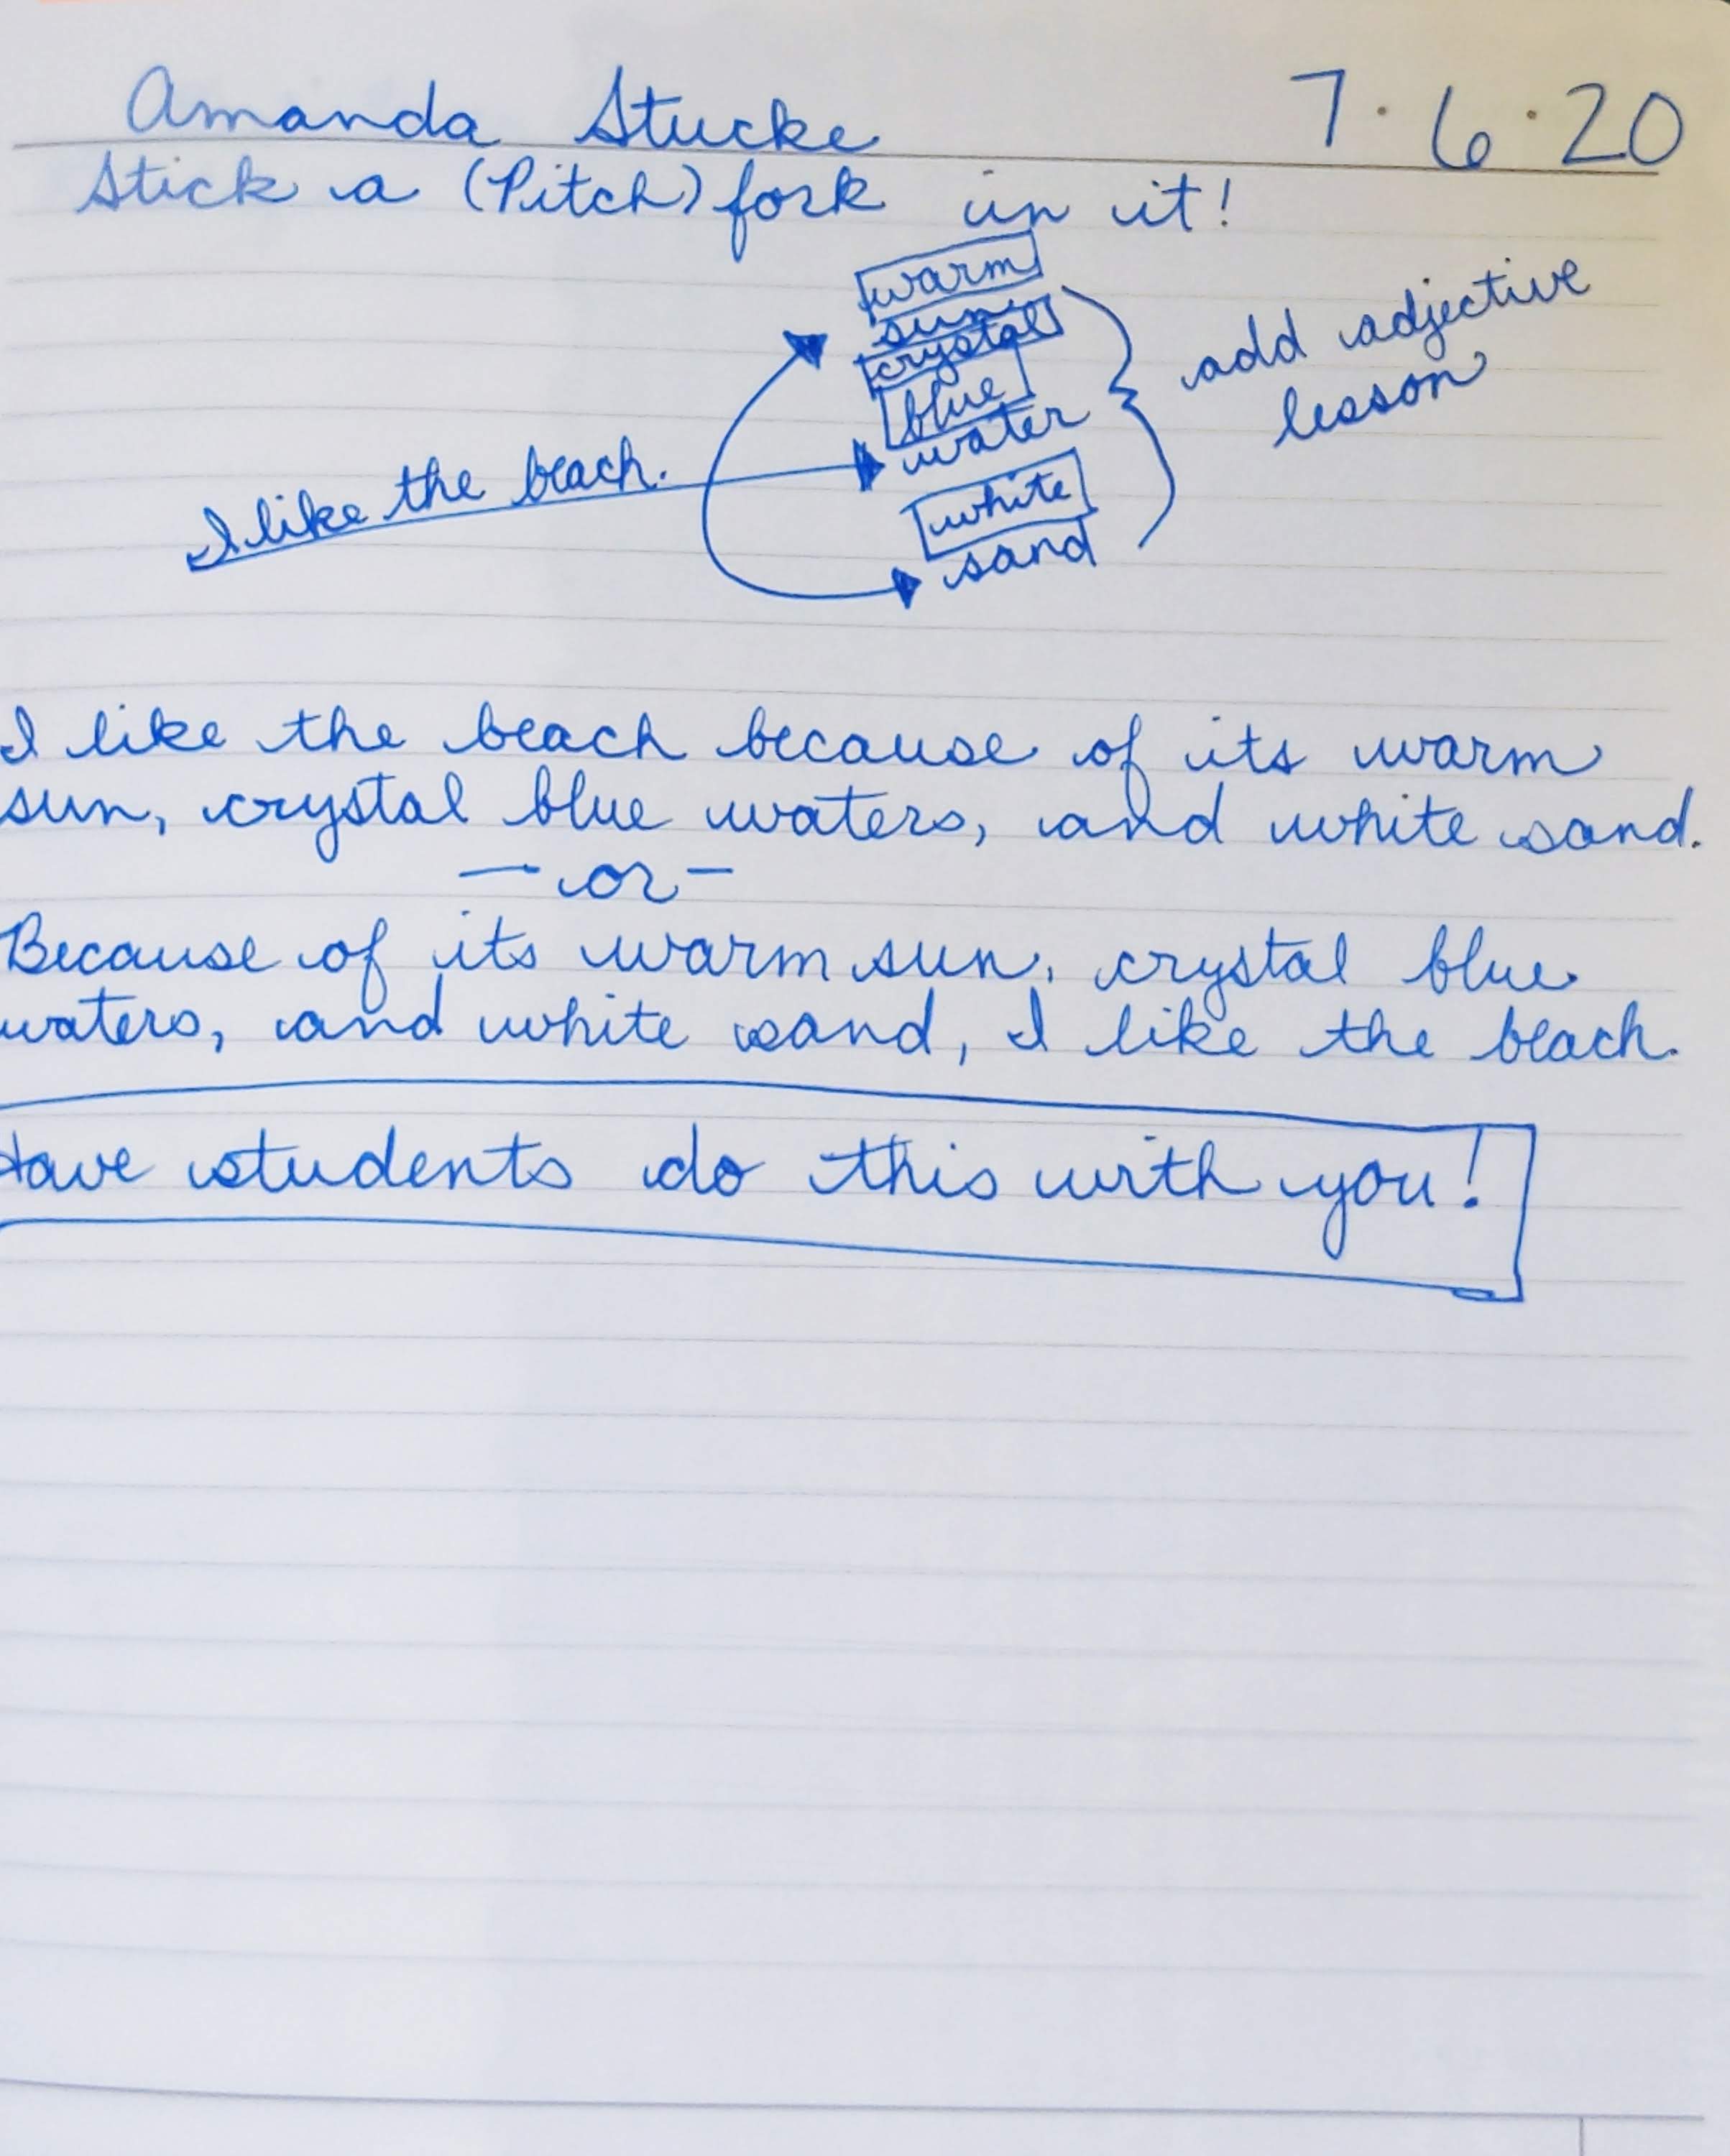 Amanda Stucke 7.6.20
Stick a (Pitch) fork in it!
warm
sun
crystal
blue
water
white
sand
add adjective
lesson
I like the beach.
I like the beach because of its warm
sun, crystal blue waters, and white sand.
- or -
Because of its warm sun, crystal blue
waters, and white sand, I like the beach.
Have students do this with you!